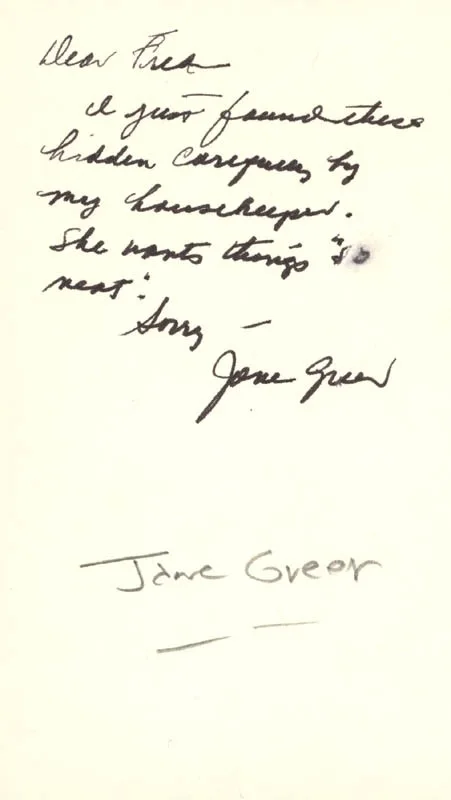 Dear Fred
I just found these
hidden carefully by
my housekeeper.
She wants things "so
neat".
Sorry —
Jane Greer
Jane Greer